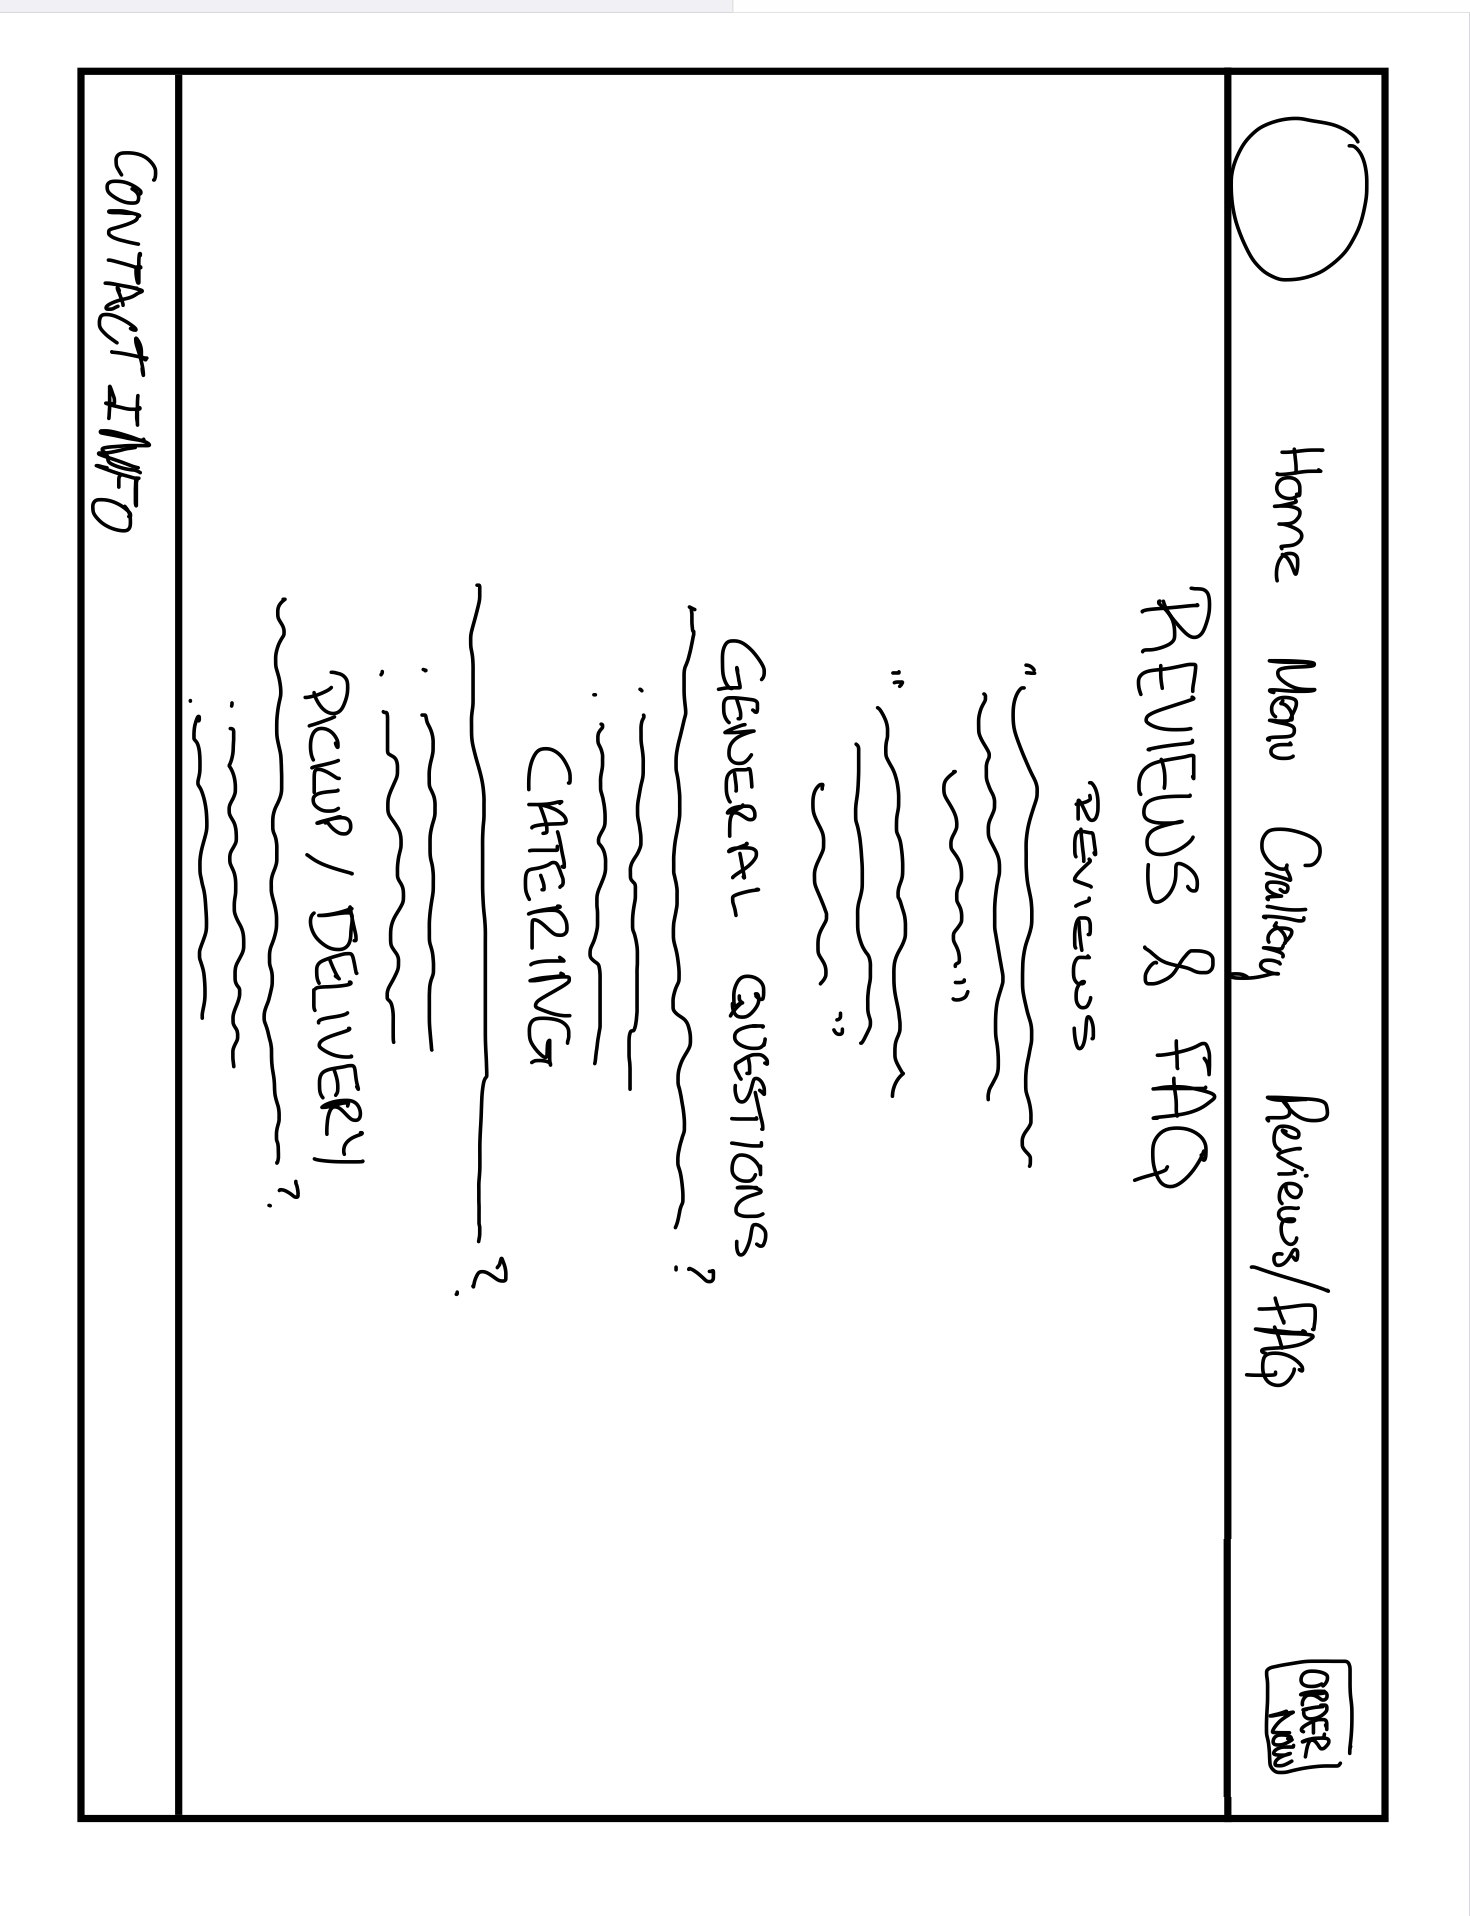 Home Menu Gallery Reviews/FAQ
ORDER
NOW
REVIEWS & FAQ
REVIEWS
"
"
"
"
GENERAL QUESTIONS
?
CATERING
?
PICKUP / DELIVERY
?
CONTACT INFO